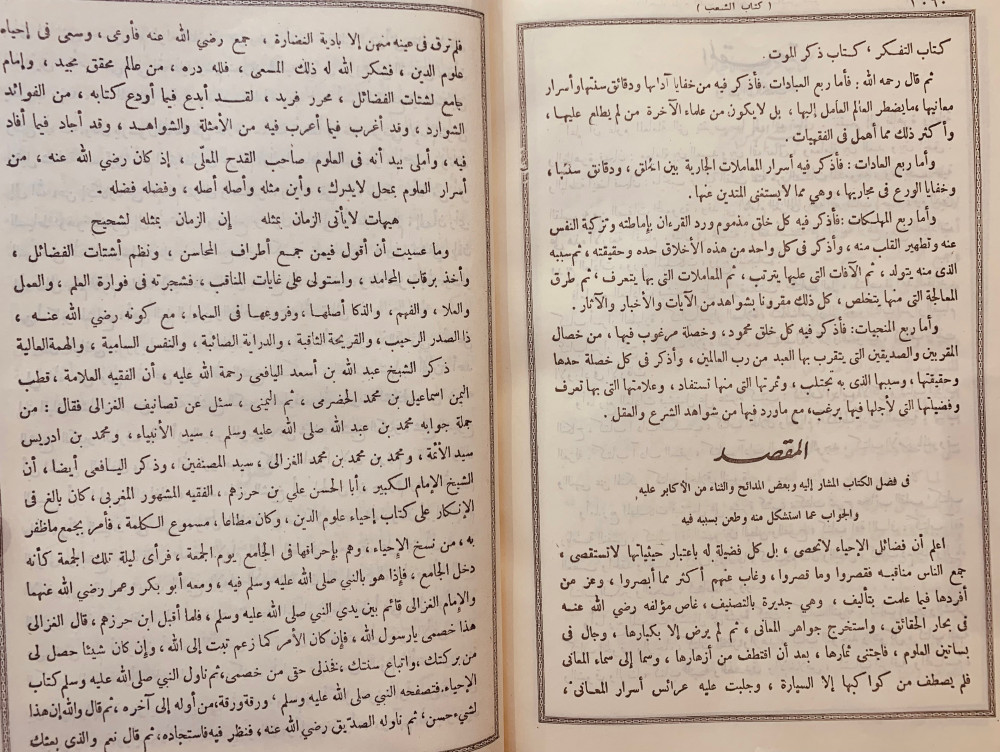 ( كتاب الشعب )
كتاب التفكر ، كتاب ذكر الموت.
ثم قال رحمه الله : فأما ربع العبادات. فأذكر فيه من خفايا آدابها ودقائق سننها وأسرار
معانيها ، مايضطر العالم العامل إليها ، بل لا يكون من علماء الآخرة من لم يطلع عليها ،
وأكثر ذلك مما أهمل فى الفقهيات .
وأما ربع العادات : فأذكر فيه أسرار المعاملات الجارية بين الخلق ، ودقائق سننها ،
وخفايا الورع فى مجاريها ، وهى مما لا يستغنى المتدين عنها .
وأما ربع المهلكات : فأذكر فيه كل خلق مذموم ورد القرءان بإماطته وتزكية النفس
عنه وتطهير القلب منه ، وأذكر فى كل واحد من هذه الأخلاق حده وحقيقته ، ثم سببه
الذى منه يتولد ، ثم الآفات التى عليها يترتب ، ثم المعاملات التى بها يتعرف ، ثم طرق
المعالجة التى منها يتخلص ، كل ذلك مقرونا بشواهد من الآيات والأخبار والآثار .
وأما ربع المنجيات : فأذكر فيه كل خلق محمود ، وخصلة مرغوب فيها ، من خصال
المقربين والصديقين التى يتقرب بها العبد من رب العالمين ، وأذكر فى كل خصلة حدها
وحقيقتها ، وسببها الذى به تجتلب ، وثمرتها التى منها تستفاد ، وعلامتها التى بها تعرف
وفضيلتها التى لأجلها فيها يرغب ، مع ماورد فيها من شواهد الشرع والعقل .
المقصد
فى فضل الكتاب المشار إليه وبعض المدائح والثناء من الأكابر عليه
والجواب عما استشكل منه وطعن بسببه فيه
اعلم أن فضائل الإحياء لاتحصى ، بل كل فضيلة له باعتبار حيثياتها لاتستقصى ،
جمع الناس مناقبه فقصروا وما قصروا ، وغاب عنهم أكثر مما أبصروا ، وعز من
أفردها فيما علمت بتأليف ، وهى جديرة بالتصنيف ، غاص مؤلفه رضي الله عنه
فى بحار الحقائق ، واستخرج جواهر المعانى ، ثم لم يرض إلا بكبارها ، وجال فى
بساتين العلوم ، فاجتنى ثمارها ، بعد أن اقتطف من أزهارها ، وسما إلى سماء المعانى
فلم يصطف من كواكبها إلا السيارة ، وجليت عليه عرائس أسرار المعانى ،
فلم ترق فى عينه منهن إلا بادية النضارة ، جمع رضي الله عنه فأوعى ، وسعى فى إحياء
علوم الدين ، فشكر الله له ذلك المسعى ، فلله دره ، من عالم محقق مجيد ، وإمام
جامع لشتات الفضائل ، محرر فريد ، لقد أبدع فيما أودع كتابه ، من الفوائد
الشوارد ، وقد أغرب فيما أعرب فيه من الأمثلة والشواهد ، وقد أجاد فيما أفاد
فيه ، وأملى بيد أنه فى العلوم صاحب القدح المعلّى ، إذ كان رضي الله عنه ، من
أسرار العلوم بمحل لايدرك ، وأين مثله وأصله أصله ، وفضله فضله .
هيهات لايأتى الزمان بمثله إن الزمان بمثله لشحيح
وما عسيت أن أقول فيمن جمع أطراف المحاسن ، ونظم أشتات الفضائل ،
وأخذ برقاب المحامد ، واستولى على غايات المناقب ، فشجرته فى فوارة العلم ، والعمل
والعلا ، والفهم ، والذكا أصلها ، وفروعها فى السماء ، مع كونه رضي الله عنه ،
ذا الصدر الرحيب ، والقريحة الثاقبة ، والدراية الصائبة ، والنفس السامية ، والهمة العالية
ذكر الشيخ عبد الله بن أسعد اليافعى رحمة الله عليه ، أن الفقيه العلامة ، قطب
اليمن اسماعيل بن محمد الحضرمى ، ثم اليمنى ، سئل عن تصانيف الغزالى فقال : من
جملة جوابه محمد بن عبد الله صلى الله عليه وسلم ، سيد الأنبياء ، ومحمد بن ادريس
سيد الأئمة ، ومحمد بن محمد بن محمد الغزالى ، سيد المصنفين ، وذكر اليافعى أيضا ، أن
الشيخ الإمام الكبير ، أبا الحسن على بن حرزهم ، الفقيه المشهور المغربى ، كان بالغ فى
الإنكار على كتاب إحياء علوم الدين ، وكان مطاعا ، مسموع الكلمة ، فأمر بجمع ماظفر
به ، من نسخ الإحياء ، وهم بإحراقها فى الجامع يوم الجمعة ، فرأى ليلة تلك الجمعة كأنه
دخل الجامع ، فإذا هو بالنبي صلى الله عليه وسلم فيه ، ومعه أبو بكر وعمر رضي الله عنهما
والإمام الغزالى قائم بين يدي النبي صلى الله عليه وسلم ، فلما أقبل ابن حرزهم ، قال الغزالى
هذا خصمى يارسول الله ، فإن كان الأمر كما زعم تبت إلى الله ، وإن كان شيئا حصل لى
من بركتك ، واتباع سنتك ، فخذلى حقى من خصمى ، ثم ناول النبي صلى الله عليه وسلم كتاب
الإحياء. فتصفحه النبي صلى الله عليه وسلم ، ورقة ورقة ، من أوله إلى آخره ، ثم قال والله إن هذا
لشىء حسن ، ثم ناوله الصديق رضي الله عنه ، فنظر فيه فاستجاده ، ثم قال نعم والذى بعثك